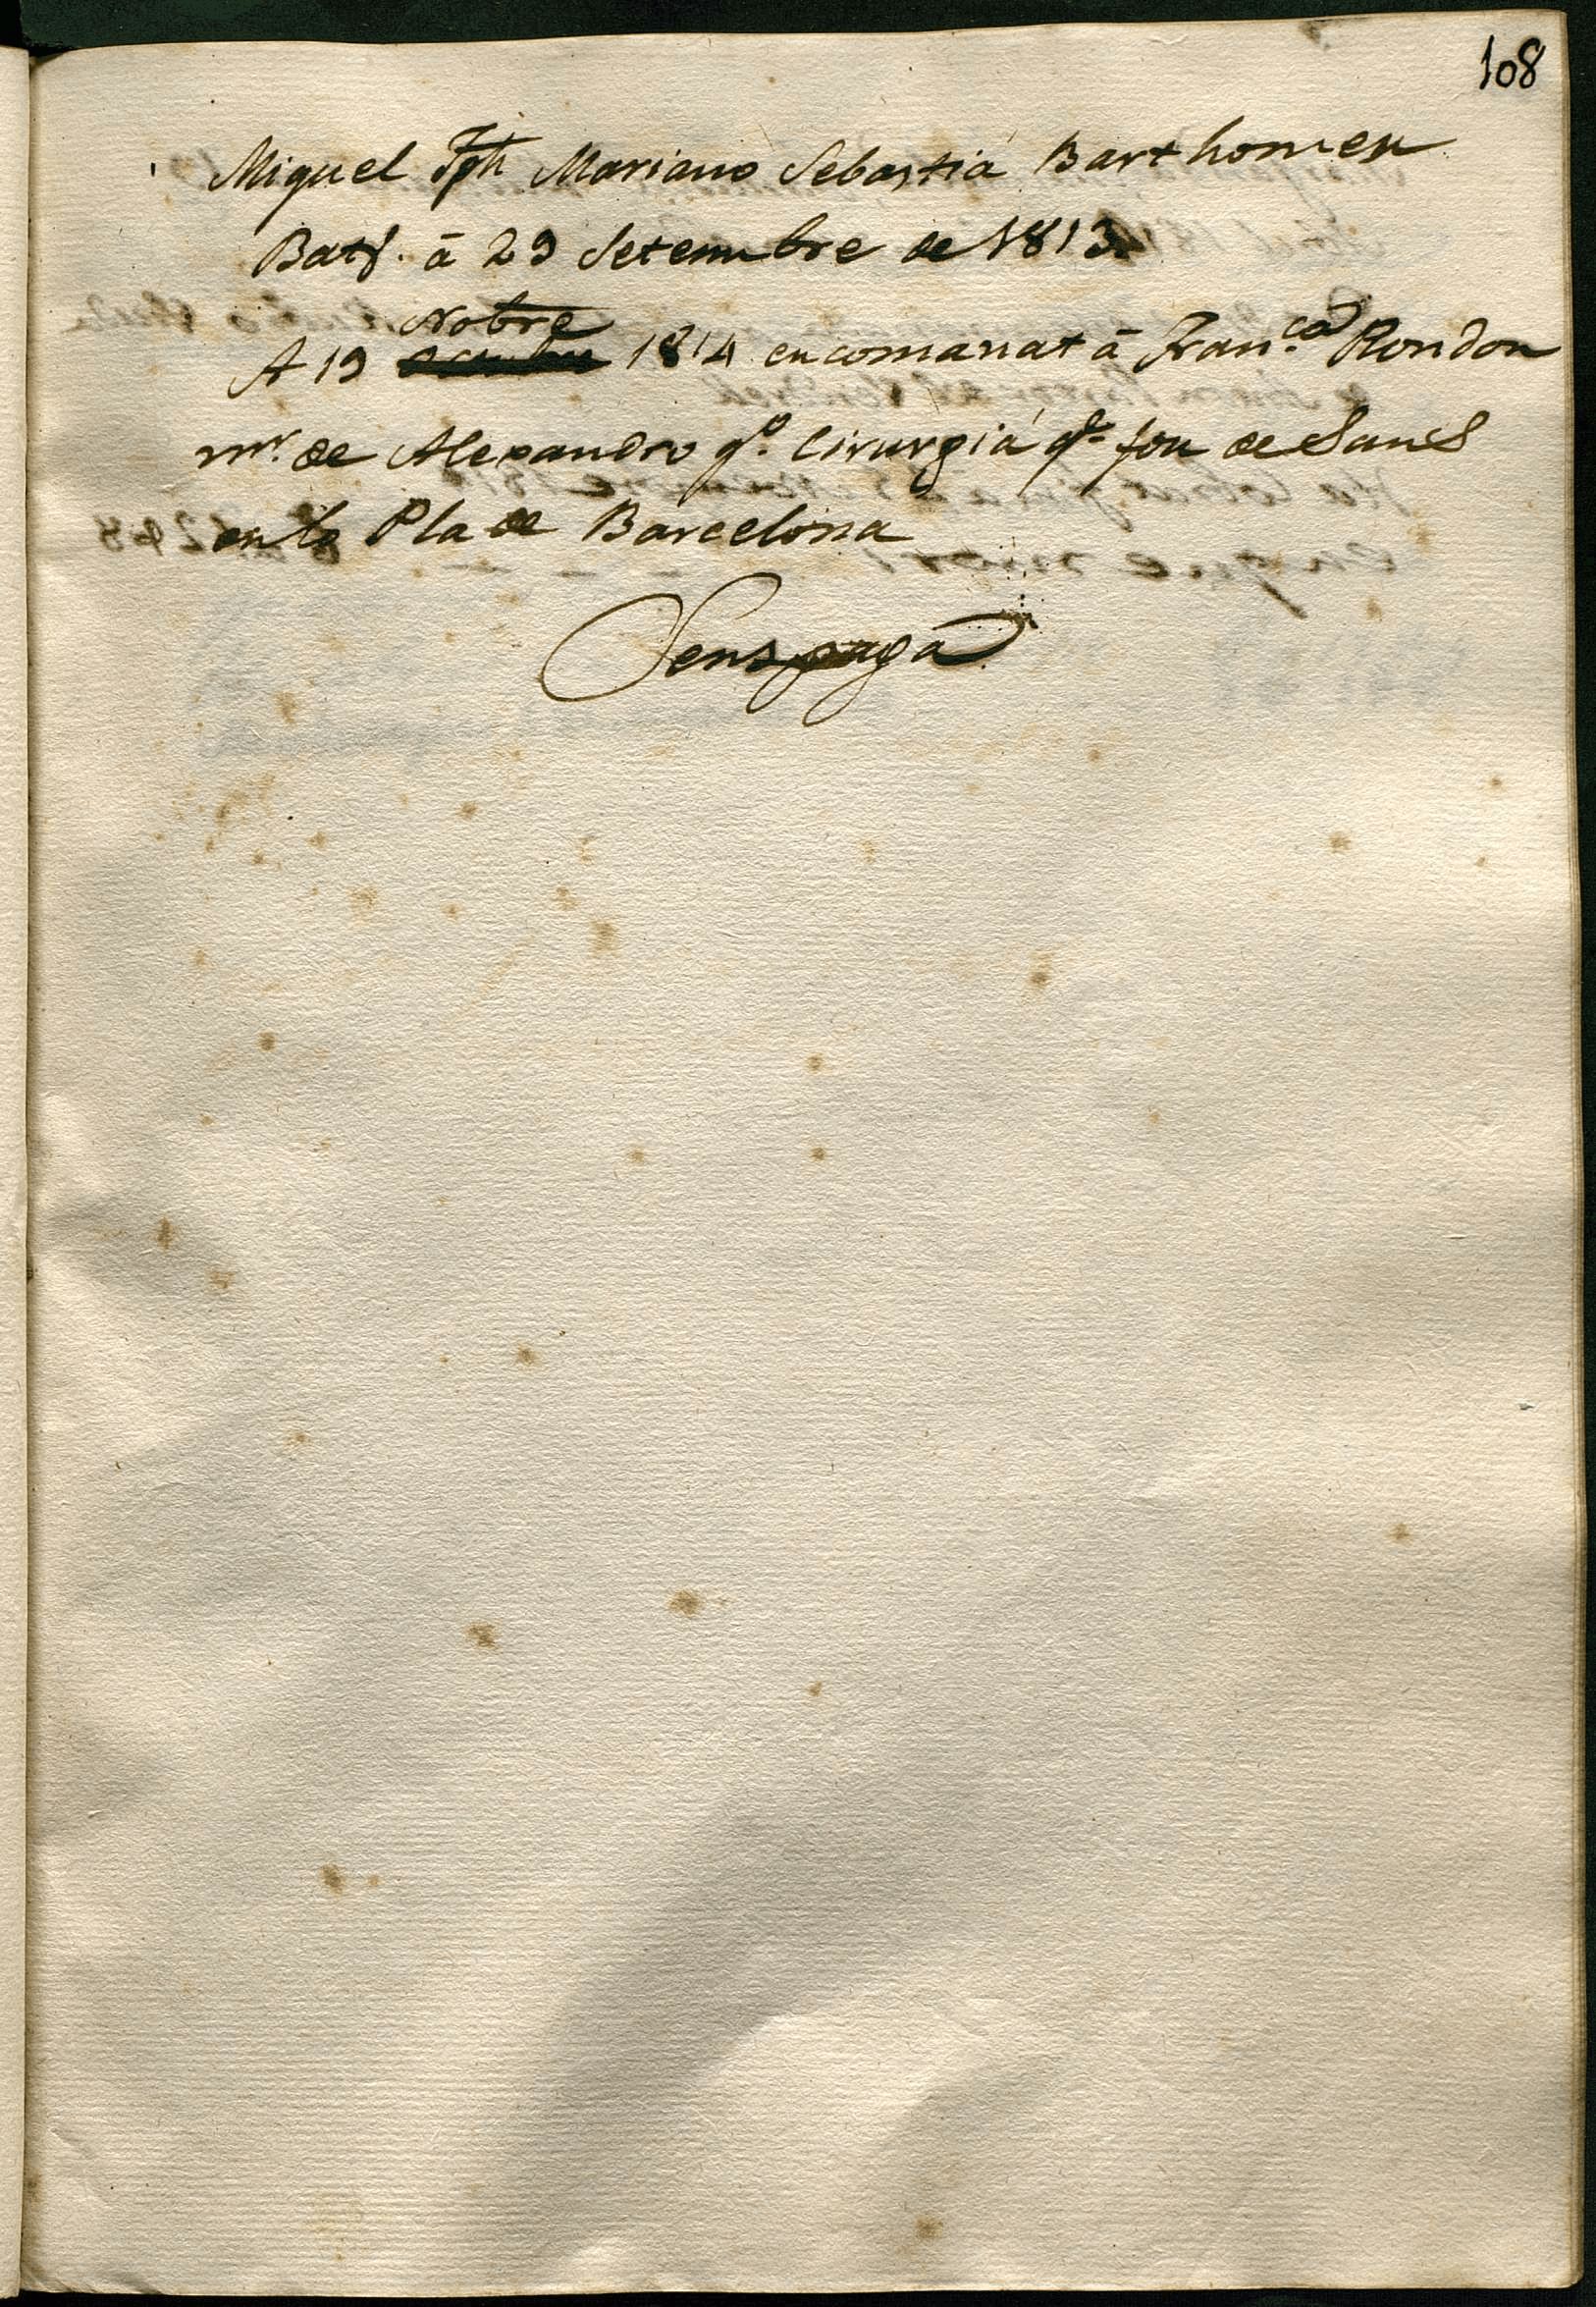 108
Miquel Jph Mariano Sebastiá Barthomeu
Batt. á 29 Setembre de 1813
Nobre
A 19 1814 encomanat á Fran.ca Rondon
mr. de Alexandro qo. Cirurgiá qe. fou de Sans
en lo Pla de Barcelona
Sens paga